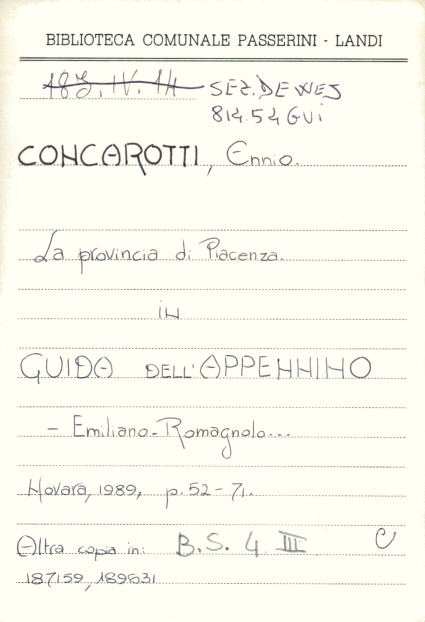 BIBLIOTECA COMUNALE PASSERINI - LANDI
SEZ. DEWEJ
814.54 GUI
CONCAROTTI, Ennio.
La provincia di Piacenza.
IN
GUIDA DELL'APPENNINO
- Emiliano-Romagnolo...
Novara, 1989, p. 52-71.
Altra copia in: B.S. 4 III C
187159, 189631